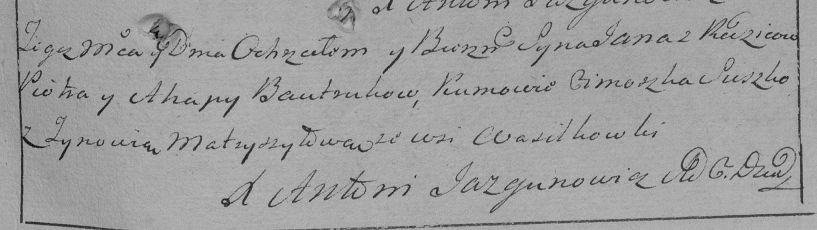 X Antoni Jazgunowicz
Tegoż Mca y Dnia Ochrzciłem y Bierzm Syna Jana z Rodziców
Piotra y Ahapy Bautrukow, Kumowie Cimoszka Suszko
z Zynowią Matryszyłową ze wsi Wasilkowki
X Antoni Jazgunowicz